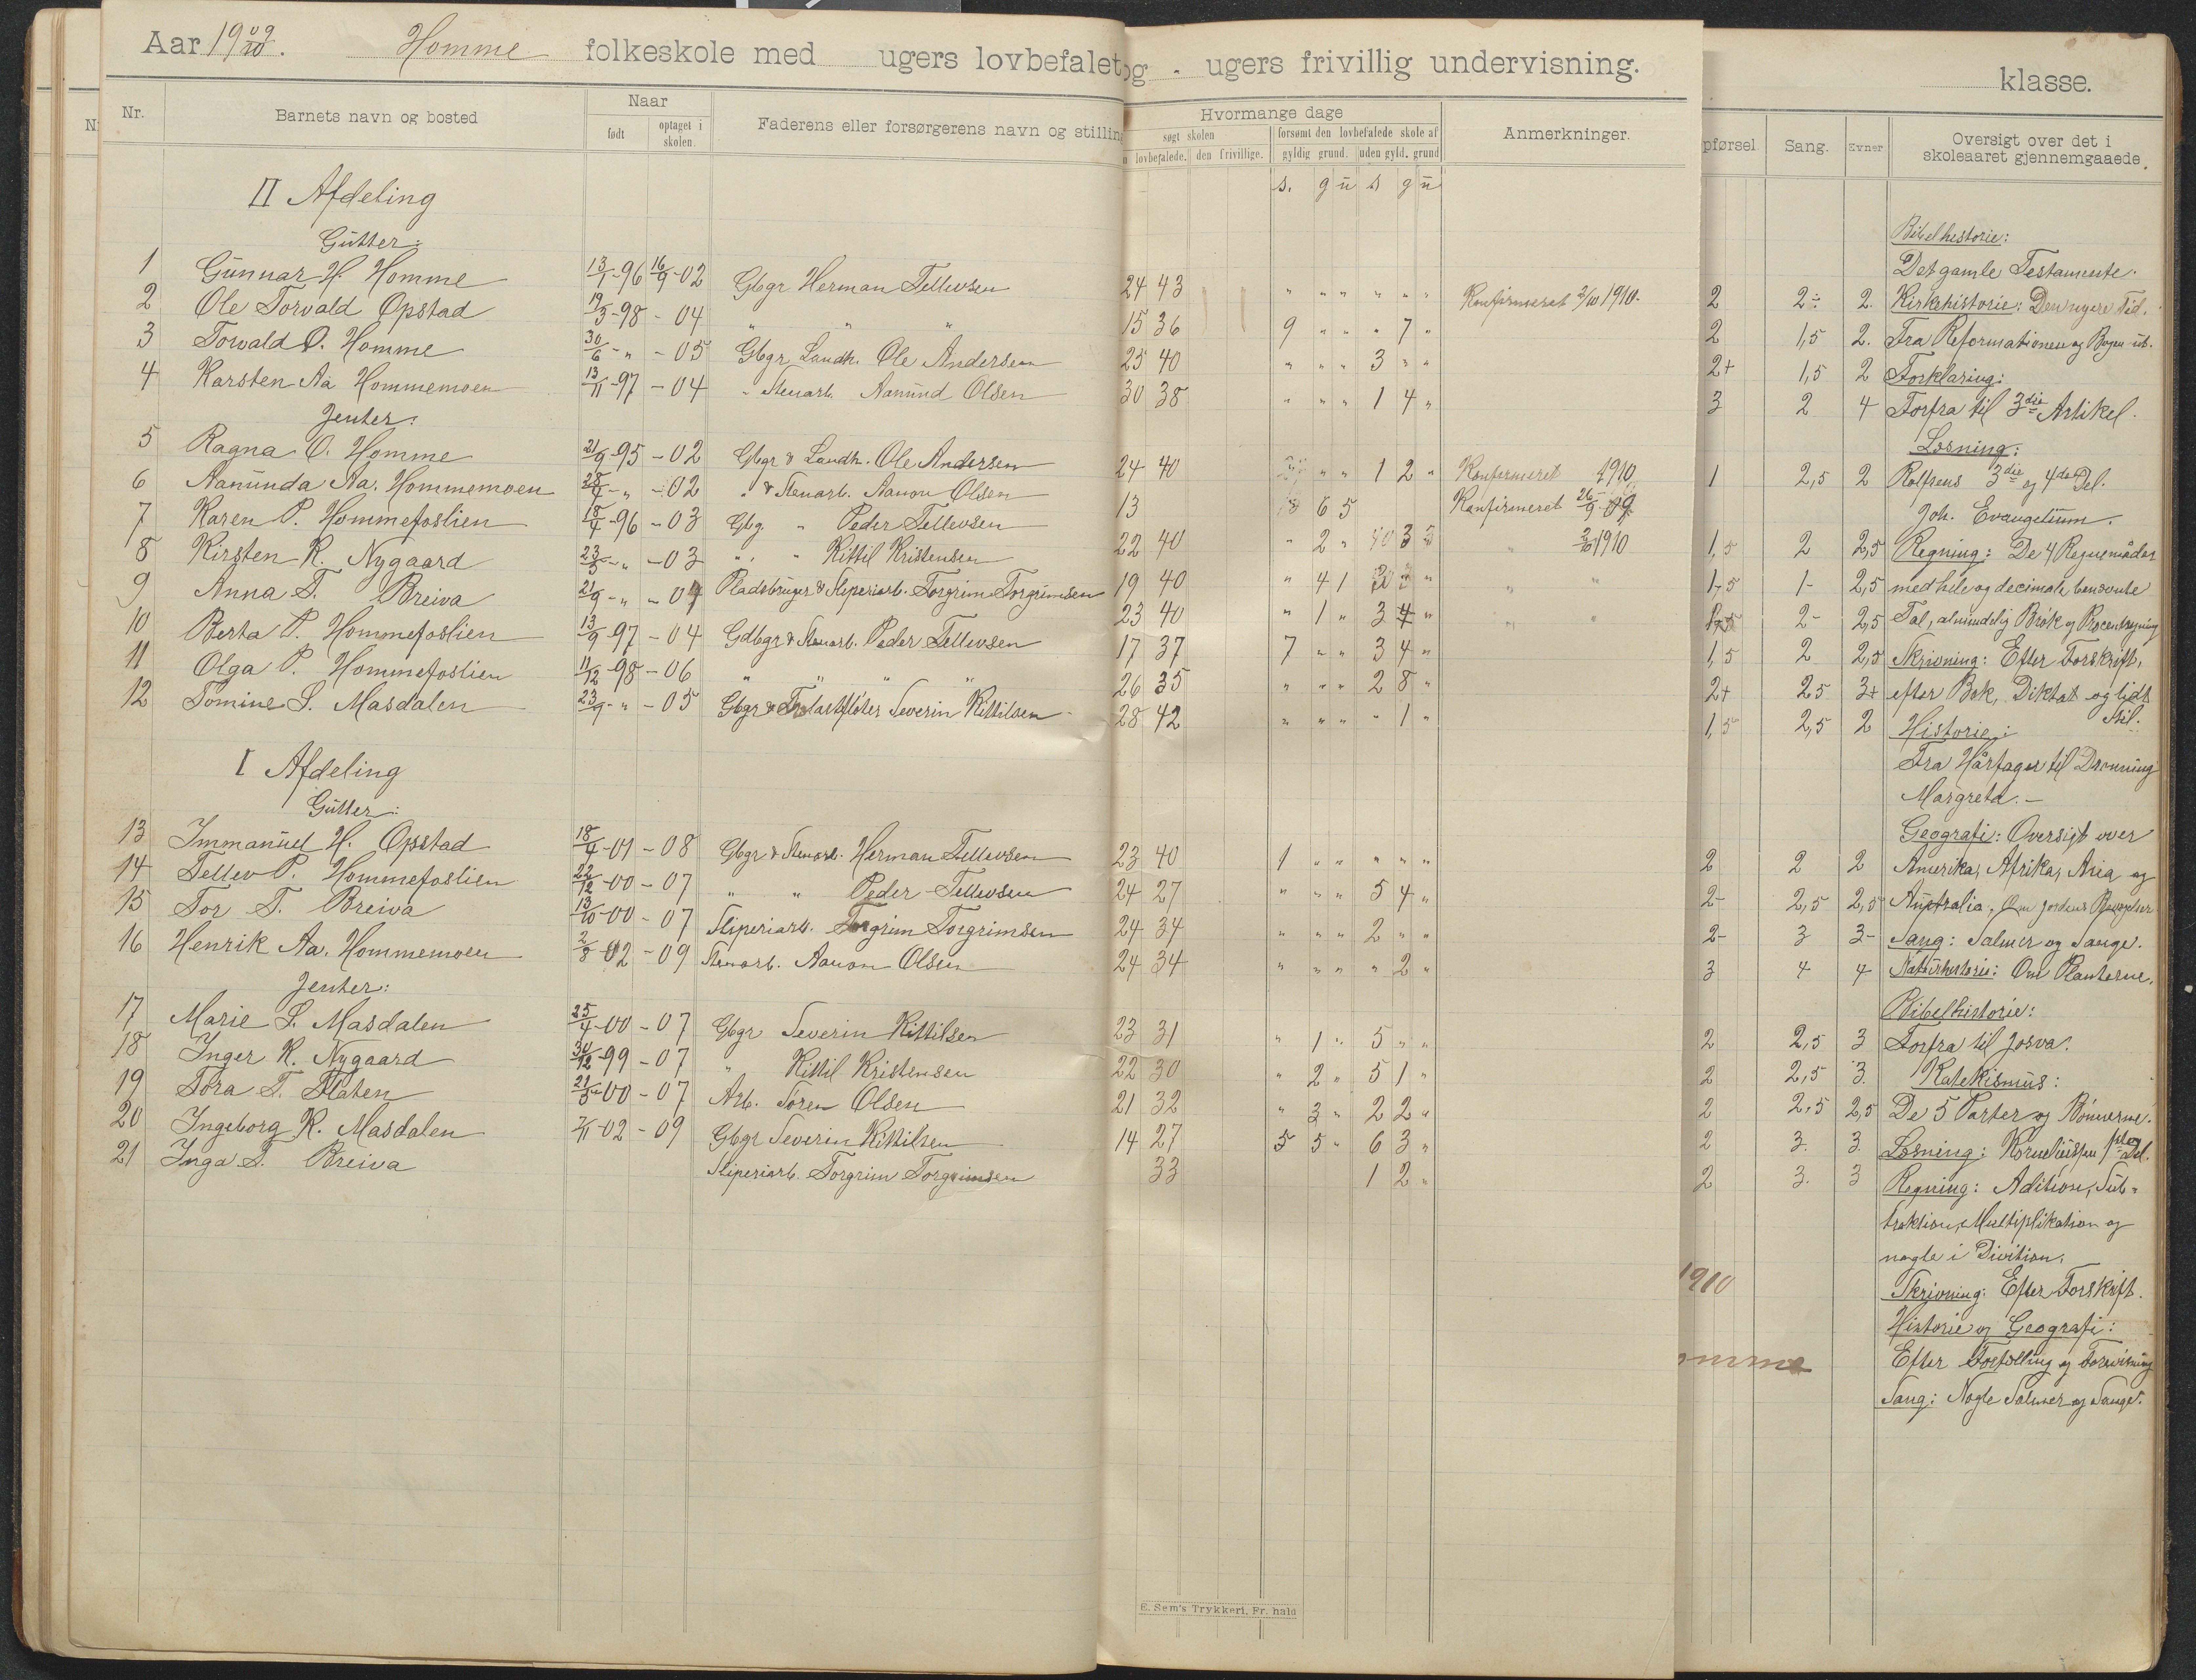 Aar 19 09/10. Homme folkeskole med ugers lovbefalet og - ugers frivillig undervisning.
klasse.
Nr. Barnets navn og bosted Naar født optaget i skolen. Faderens eller forsørgerens navn og stilling
Hvormange dage søgt skolen lovbefalede. den frivillige. forsømt den lovbefalede skole af gyldig grund. uden gyld. grund Anmerkninger.
pførsel Sang. Evner Oversigt over det i skoleaaret gjennemgaaede.
s. g ü s g ü
II Afdeling
Gutter:
1 Gunnar H. Homme 13/1-96 16/9-02 Gbgr Herman Tellevsen 24 43 " " " " " " Konfirmeret 2/10 1910. 2 2÷ 2.
2 Ole Torvald Opstad 19/3-98 - 04 " " " 15 36 9 " " " 7 " 2 1,5 2.
3 Torvald O. Homme 30/6 - " - 05 Gbgr Landh. Ole Andersen 25 40 " " " 3 " " 2+ 1,5 2
4 Karsten Aa Hommemoen 13/11-97 - 04 " Stenarb. Aanund Olsen 30 38 " " " 1 4 " 3 2 4
Jenter:
5 Ragna O. Homme 21/9-95 - 02 Gbgr & Landh. Ole Andersen 24 40 " " 1 2 " Konfirmeret 1910. 1 2,5 2
6 Aanunda Aa. Hommemoen 28/4 - " - 02 " & Stenarb. Aanon Olsen 13 6 5 Konfirmeret 26/9-09.
7 Karen P. Hommefoslien 18/4-96 - 03 Gbg. " Peder Tellevsen 22 40 " 2 " 3 " 2/10 1910 1,5 2 2,5
8 Kirsten K. Nygaard 23/5 - " - 03 " " Kittil Kristensen 19 40 " 4 1 " " " 1,5 1- 2,5
9 Anna T. Breiva 21/9 - " - 04 Pladsbruger & Sliperiarb. Torgrim Torgrimsen 23 40 " 1 " 3 4 " " " 2- 2,5
10 Berta P. Hommefoslien 13/9-97 - 04 Gdbgr & Stenarb. Peder Tellevsen 17 37 7 " " 3 4 " 1,5 2 2,5
11 Olga P. Hommefoslien 11/12-98 - 06 " " " " 26 35 " " " 2 8 " 2+ 2,5 3+
12 Tomine S. Masdalen 23/9 - " - 05 Gbgr & Severin Kittilsen 28 42 " " " " 1 " 1,5 2,5 2
I Afdeling
Gutter:
13 Immanuel H. Opstad 18/4-01 - 08 Gbgr & Stenarb. Herman Tellevsen 23 40 1 " " " " " 2 2 2
14 Tellev P. Hommefoslien 22/12-00 - 07 " " Peder Tellevsen 24 27 " " " 5 4 " 2- 2,5 2,5
15 Tor T. Breiva 13/10-00 - 07 Sliperiarb. Torgrim Torgrimsen 24 34 " " " 2 " " 2- 3 3-
16 Henrik Aa. Hommemoen 2/8-02 - 09 Stenarb. Aanon Olsen 24 34 " " " " 2 " 3 4 4
Jenter:
17 Marie S. Masdalen 25/4-00 - 07 Gbgr Severin Kittilsen 23 31 " 1 " 5 " " 2 2,5 3
18 Inger K. Nygaard 30/12-99 - 07 " Kittil Kristensen 22 30 " 2 " 5 1 " 2 2,5 3.
19 Tora T. Flaten 21/5-00 - 07 Arb. Tören Olsen 21 32 " 3 " 2 2 " 2 2,5 2,5
20 Ingeborg K. Masdalen 7/11-02 - 09 Gbgr Severin Kittilsen 14 27 5 5 " 6 3 " 2 3. 3.
21 Inga T. Breiva Sliperiarb. Torgrim Torgrimsen 33 1 2 " 2 3. 3
Bibelhistorie:
Det gamle Testamente.
Kirkehistorie: Den nyere Tid.
Fra Reformationen og Bogen ut.
Forklaring:
Forfra til 3die Artikel.
Læsning:
Rolfsens 3die og 4de Del.
Joh. Evangelium.
Regning: De 4 Regnemåder
med hele og decimale benevnte
Tal, almindelig Brøk og Procentregning
Skrivning: Efter Forskrift,
efter Bok, Diktat og lidt
Stil.
Historie:
Fra Hårfager til Dronning
Margreta. -
Geografi: Oversigt over
Amerika, Afrika, Asia og
Australia, Om Jordens
Sang: Salmer og Sange.
Naturhistorie: Om Planterne.
Bibelhistorie:
Forfra til Josva.
Katekismus:
De 5 Parter og Bønnerne.
Læsning: 1ste Del.
Regning: Adition, Sub-
traktion, Multiplikation og
nogle i Division.
Skrivning: Efter Forskrift.
Historie og Geografi:
Efter Fortælling og Forevisning
Sang: Nogle Salmer og Sange.
1910
omme
E. Sem's Trykkeri, Fr. hald